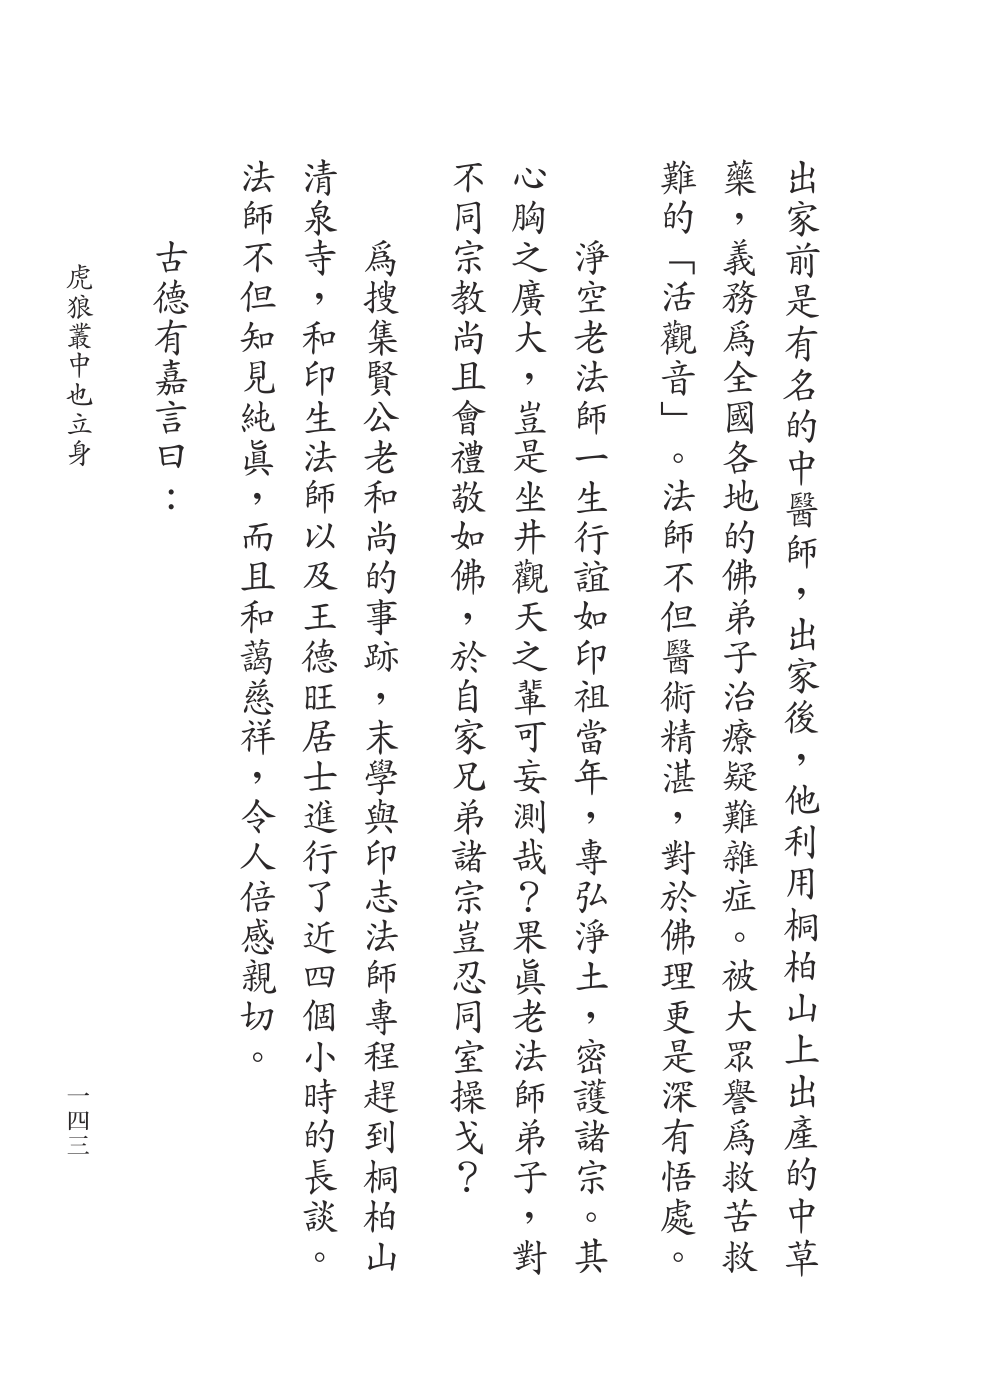 出家前是有名的中醫師，出家後，他利用桐柏山上出產的中草
藥，義務爲全國各地的佛弟子治療疑難雜症。被大眾譽爲救苦救
難的「活觀音」。法師不但醫術精湛，對於佛理更是深有悟處。
淨空老法師一生行誼如印祖當年，專弘淨土，密護諸宗。其
心胸之廣大，豈是坐井觀天之輩可妄測哉？果眞老法師弟子，對
不同宗教尚且會禮敬如佛，於自家兄弟諸宗豈忍同室操戈？
爲搜集賢公老和尚的事跡，末學與印志法師專程趕到桐柏山
清泉寺，和印生法師以及王德旺居士進行了近四個小時的長談。
法師不但知見純眞，而且和藹慈祥，令人倍感親切。
古德有嘉言曰：
虎狼叢中也立身
一四三